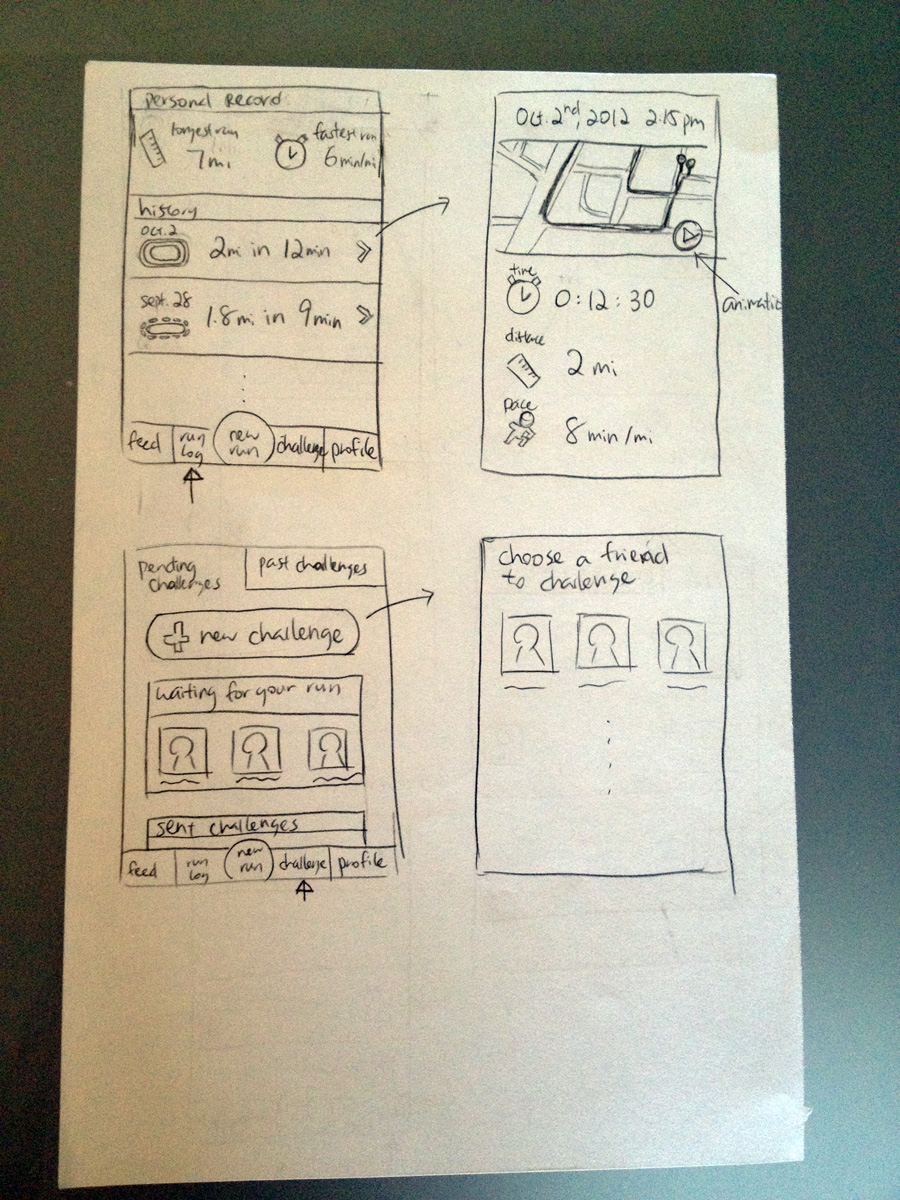 personal record
longest run
7mi
fastest run
6min/mi
history
Oct. 2
2mi in 12min
sept. 28
1.8mi in 9min
feed
run log
new run
challenge
profile
Oct. 2nd, 2012 2:15pm
animatio
time
0:12:30
distance
2 mi
pace
8 min/mi
pending
challenges
past challenges
new challenge
waiting for your run
sent challenges
feed
run log
new run
challenge
profile
choose a friend
to challenge